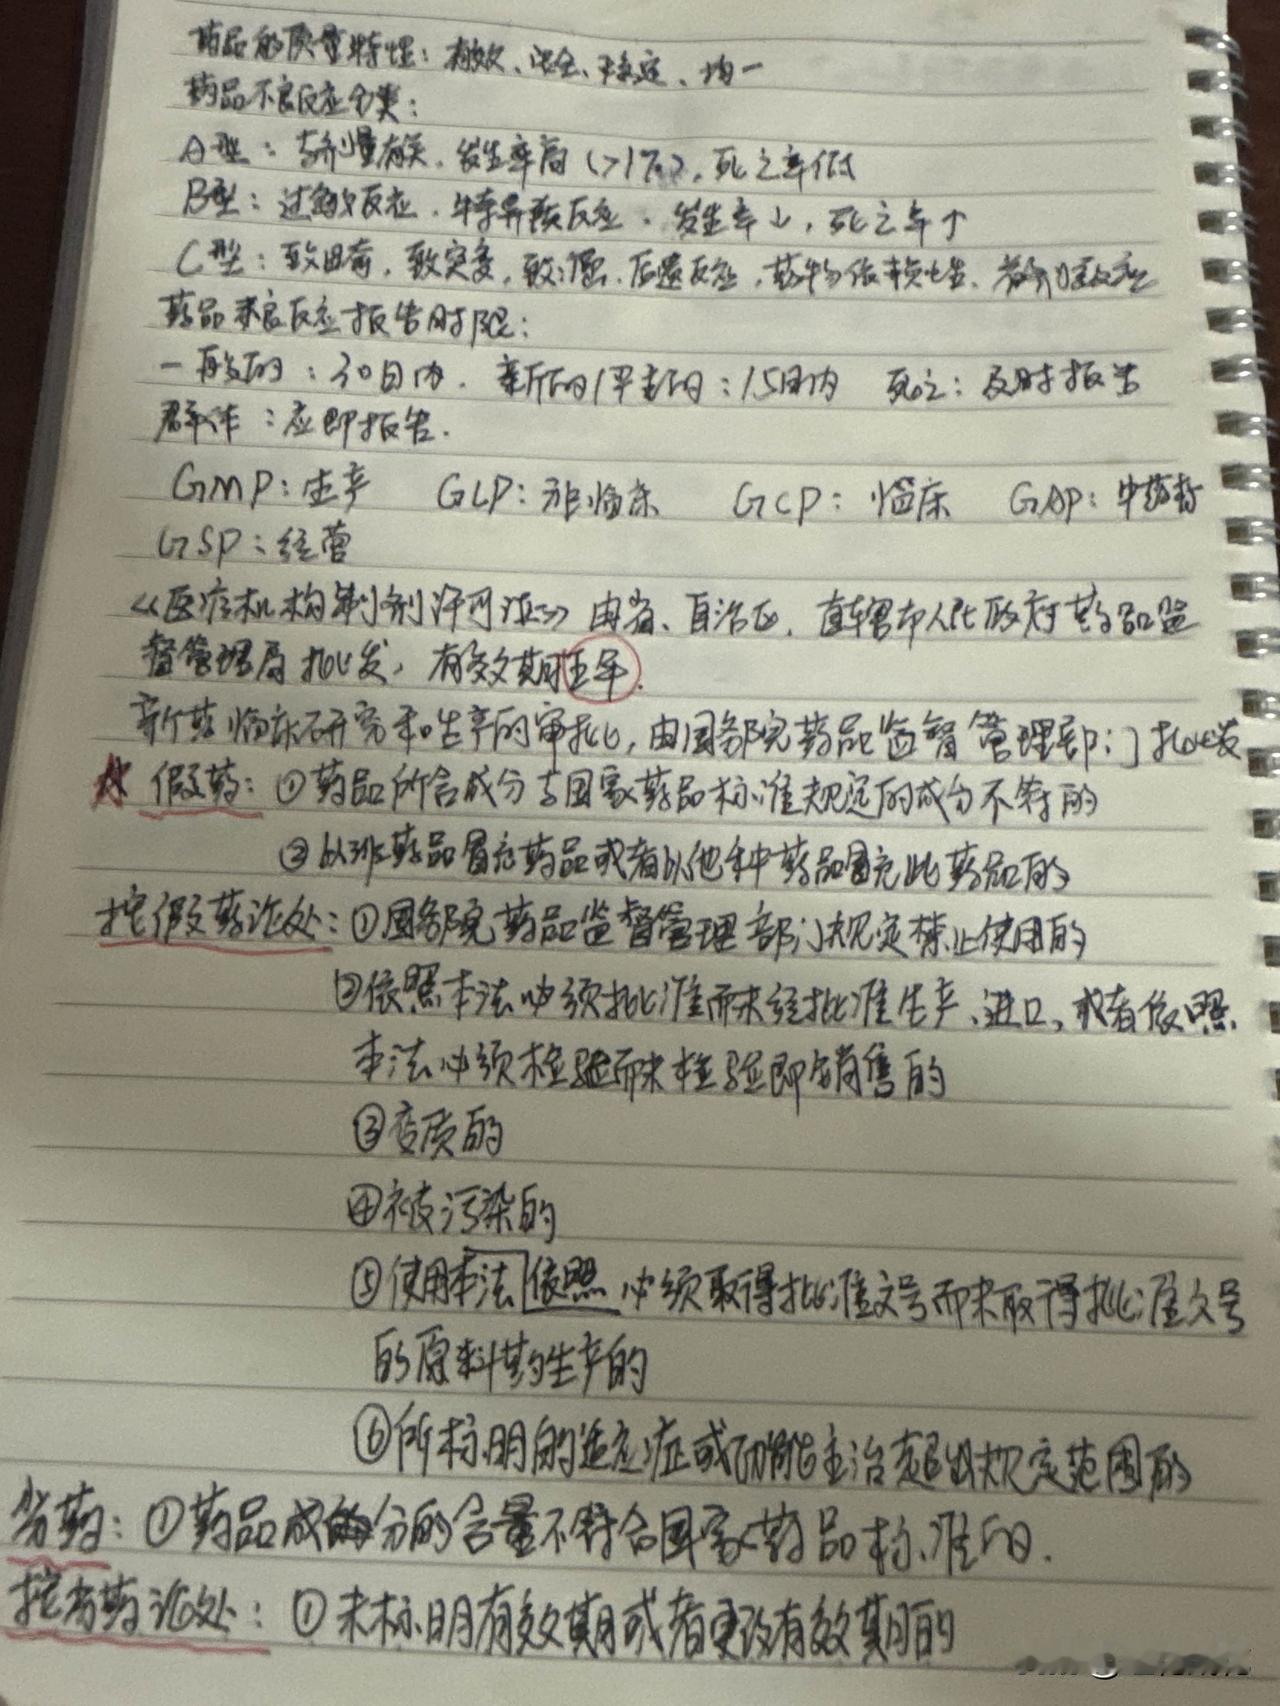 药品的质量特性：有效、安全、稳定、均一
药品不良反应分类：
A型：与剂量有关，发生率高（>1%），死亡率低
B型：过敏反应、特异质反应、发生率↓，死亡率↑
C型：致畸，致突变，致癌、后遗反应，药物依赖性
药品不良反应报告时限：
一般的：30日内．新的/严重的：15日内 死亡：及时报告
群体：应即报告．
GMP：生产 GLP：非临床 GCP：临床 GAP：中药材
GSP：经营
《医疗机构制剂许可证》由省、自治区、直辖市人民政府药品监
督管理局批发，有效期五年．
新药临床研究和生产的审批，由国务院药品监督管理部门批发
假药：①药品所含成分与国家药品标准规定的成分不符的
②以非药品冒充药品或者以他种药品冒充此药品的
按假药论处：①国务院药品监督管理部门规定禁止使用的
②依照本法必须批准而未经批准生产、进口，或者依照
本法必须检验而未检验即销售的
③变质的
④被污染的
⑤使用本法依照必须取得批准文号而未取得批准文号
的原料药生产的
⑥所标明的适应症或功能主治超出规定范围的
劣药：①药品成分的含量不符合国家药品标准的．
按劣药论处：①未标明有效期或者更改有效期的